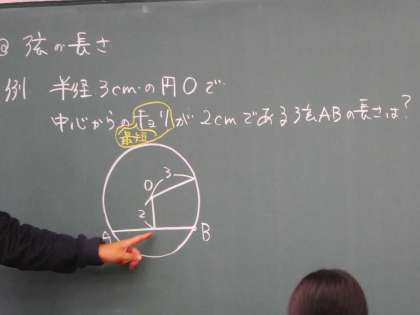 ② 弦の長さ
例 半径3cmの円Oで
中心からのキョリが2cmである弦ABの長さは?
最短
3
O
2
A
B